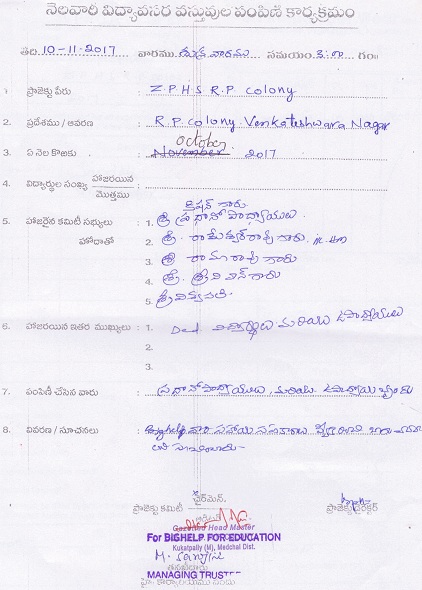 నెలవారి విద్యావసర వస్తువుల పంపిణి కార్యక్రమం
తేది 10-11-2017 వారము శుక్రవారము సమయం 3:00 గం॥
1 ప్రాజెక్టు పేరు : Z.P.H.S R.P colony
2. ప్రదేశము / ఆవరణ : R.P. colony Venkateshwara Nagar
october
3. ఏ నెల కొఱకు : November 2017
4. విద్యార్థుల సంఖ్య హాజరయిన
మొత్తము :
5. హాజరైన కమిటీ సభ్యులు : 1. శ్రీ కిషన్ గారు
ప్రధానోపాధ్యాయులు
హోదాతో 2. శ్రీ. రామేశ్వర్ రావు గారు
3. శ్రీ రామారావు గారు
4. శ్రీ. శ్రీనివాస్ గారు
5.
6. హాజరయిన ఇతర ముఖ్యులు : 1. విద్యార్థులు మరియు ఉపాధ్యాయులు
2.
3.
7. పంపిణీ చేసిన వారు : ప్రధానోపాధ్యాయులు, మరియు ఉపాధ్యాయ బృందం
8. వివరణ / సూచనలు : Bighelp వారి సహాయ సహకారాలు
ఛైర్మెన్.
ప్రాజెక్టు కమిటీ ప్రాజెక్టు డైరెక్టర్
Gazetted Head Master
For BIGHELP FOR EDUCATION
Kukatpally (M), Medchal Dist.
MANAGING TRUSTEE